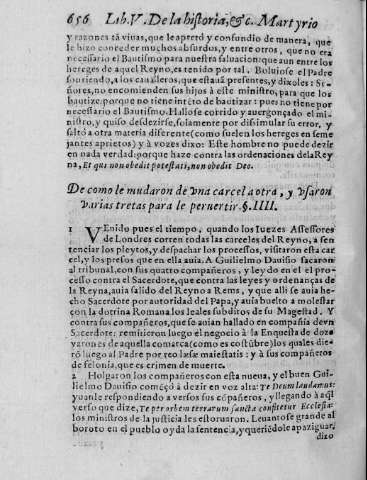 656 Lib. V. De la historia, &c. Martyrio
y razones tã viuas, que le apretó y confundio de manera, que
le hizo conceder muchos absurdos, y entre otros, que no era
necessario el Bautismo para nuestra saluacion: que aun entre los
hereges de aquel Reyno, es tenido por tal. Boluiose el Padre
sonriendo, a los caualleros, que estauã presentes, y dixoles: Se-
ñores, no encomienden sus hijos à este ministro, para que los
bautize: porque no tiene intẽto de bautizar: pues no tiene por
necessario el Bautismo. Hallose corrido y auergonçado el mi-
nistro, y quiso desdezirse, solamente por dissimular su error, y
saltó a otra materia diferente (como suelen los hereges en seme
jantes aprietos) y à vozes dixo: Este hombre no puede dezir
en nada verdad: porque haze contra las ordenaciones dela Rey
na, Et qui non obedit potestati, non obedit Deo.
De como le mudaron de vna carcel a otra, y vsaron
varias tretas para le peruertir. §. IIII.
1 VEnido pues el tiempo, quando los Iuezes Assessores
de Londres corren todas las carceles del Reyno, a sen
tenciar los pleytos, y despachar los processos, visitaron esta car
cel, y los presos que en ella auia. A Guilielmo Dauisio sacaron
al tribunal, con sus quatro compañeros, y leydo en el el pro-
cesso contra el Sacerdote, que contra las leyes y ordenanças de
la Reyna, auia salido del Reyno a Rems, y que alli se auia he-
cho Sacerdote por autoridad del Papa, y auia buelto a molestar
con la dotrina Romana los leales subditos de su Magestad. Y
contra sus compañeros, que se auian hallado en compañia de vn
Sacerdote: remitieron luego el negocio à la Enquesta de doze
varones de aquella comarca (como es costũbre) los quales die-
rõ luego al Padre por reo læsæ maiestatis: y à sus compañeros
de felonia, que es crimen de muerte.
2 Holgaron los compañeros con esta nueva, y el buen Gui-
lielmo Dauisio comẽçó à dezir en voz alta: Te Deum laudamus:
yuanle respondiendo a versos sus cõpañeros, y llegando à aquel
verso que dize, Te per orbem terrarum sancta confitetur Ecclesia:
los ministros de la justicia les estoruaron. Leuantose grande al
boroto en el pueblo oyda la sentencia, y queriẽdole apaziguar,
dixo